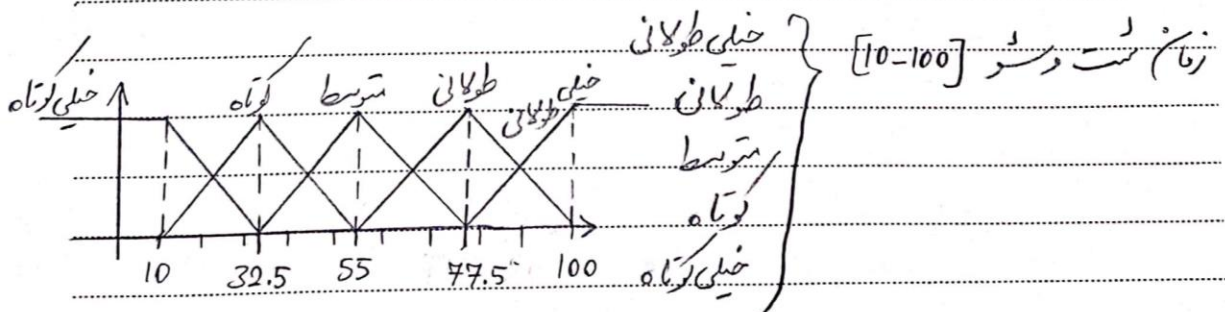 زمان شست و شو [10-100]
خیلی طولانی
طولانی
متوسط
کوتاه
خیلی کوتاه
خیلی کوتاه
کوتاه
متوسط
طولانی
خیلی طولانی
10 32.5 55 77.5 100